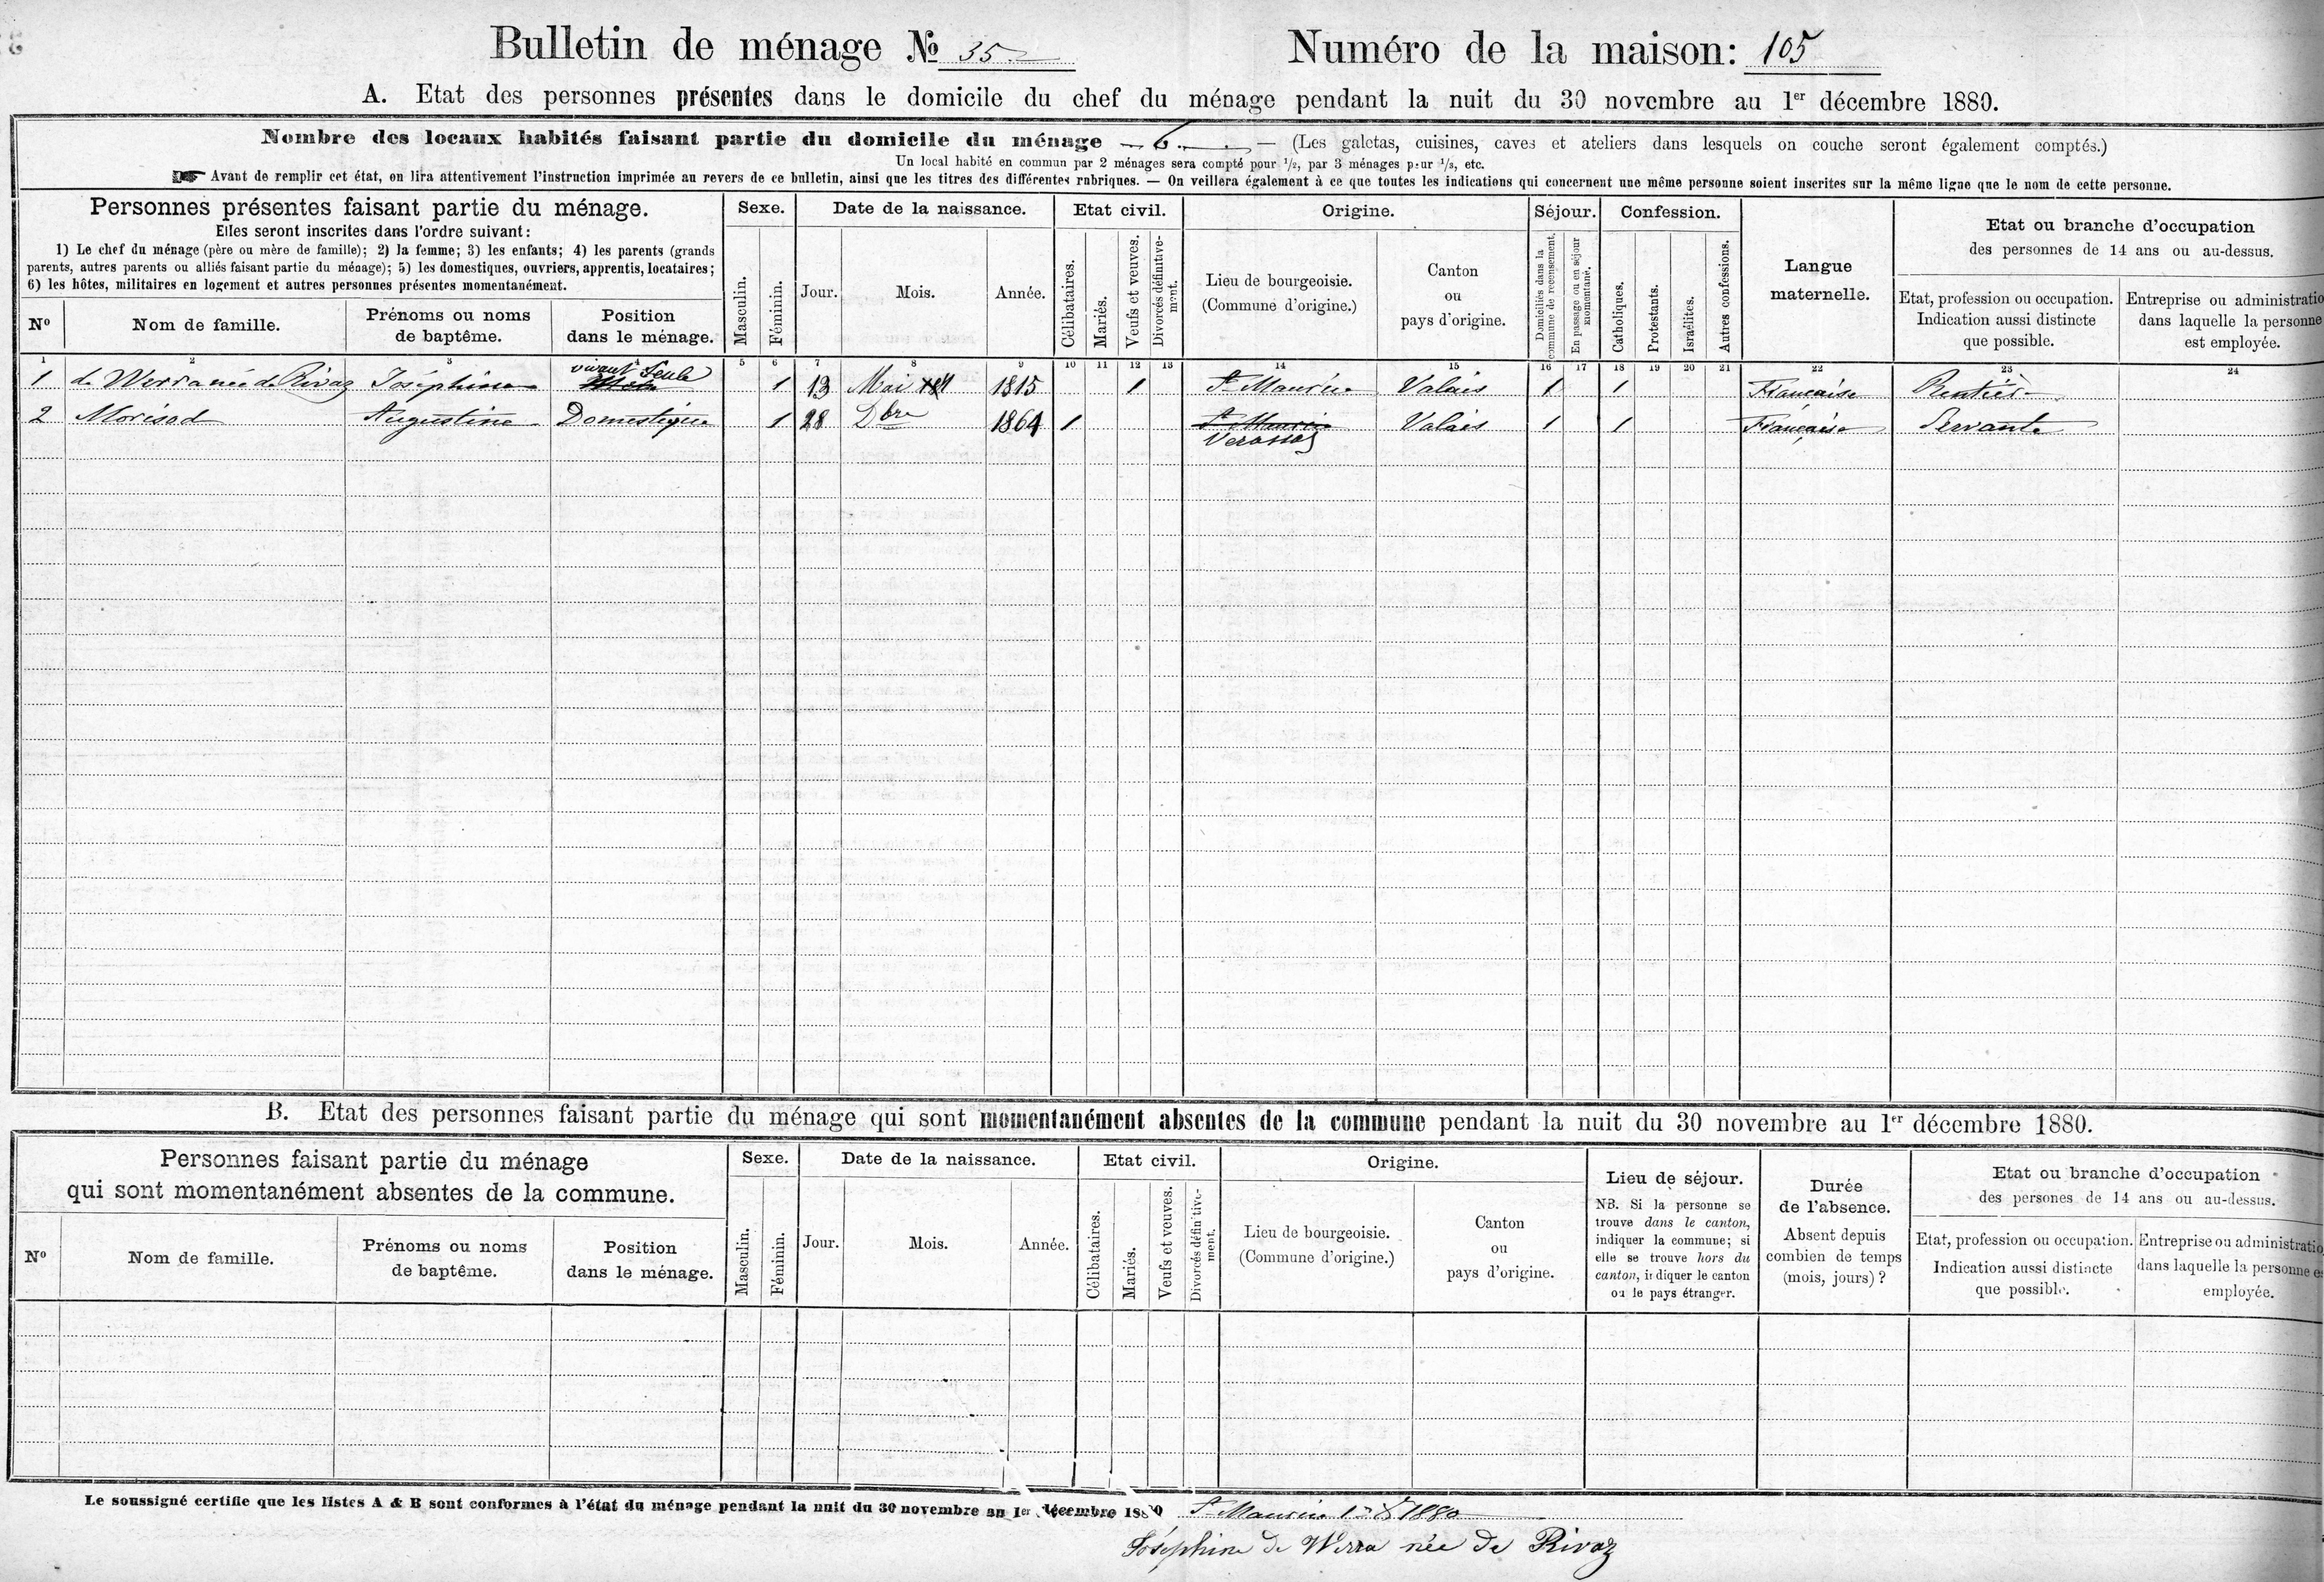 Bulletin de ménage № 35 Numéro de la maison: 105
A. Etat des personnes présentes dans le domicile du chef du ménage pendant la nuit du 30 novembre au 1er décembre 1880.
Nombre des locaux habités faisant partie du domicile du ménage — 6. — (Les galetas, cuisines, caves et ateliers dans lesquels on couche seront également comptés.)
Un local habité en commun par 2 ménages sera compté pour 1/2, par 3 ménages pour 1/3, etc.
☛ Avant de remplir cet état, on lira attentivement l'instruction imprimée au revers de ce bulletin, ainsi que les titres des différentes rubriques. — On veillera également à ce que toutes les indications qui concernent une même personne soient inscrites sur la même ligne que le nom de cette personne.
Personnes présentes faisant partie du ménage.
Elles seront inscrites dans l'ordre suivant:
1) Le chef du ménage (père ou mère de famille); 2) la femme; 3) les enfants; 4) les parents (grands
parents, autres parents ou alliés faisant partie du ménage); 5) les domestiques, ouvriers, apprentis, locataires;
6) les hôtes, militaires en logement et autres personnes présentes momentanément.
Nº
Nom de famille.
Prénoms ou noms
de baptême.
Position
dans le ménage.
Sexe.
Masculin.
Féminin.
Date de la naissance.
Jour.
Mois.
Année.
Etat civil.
Célibataires.
Mariés.
Veufs et veuves.
Divorcés définitive-
ment.
Origine.
Lieu de bourgeoisie.
(Commune d'origine.)
Canton
ou
pays d'origine.
Séjour.
Domiciliés dans la
commune de recensement.
En passage ou en séjour
momentané.
Confession.
Catholiques.
Protestants.
Israélites.
Autres confessions.
Langue
maternelle.
Etat ou branche d'occupation
des personnes de 14 ans ou au-dessus.
Etat, profession ou occupation.
Indication aussi distincte
que possible.
Entreprise ou administratio
dans laquelle la personne
est employée.
1 2 3 4 5 6 7 8 9 10 11 12 13 14 15 16 17 18 19 20 21 22 23 24
vivant Seule
1 de Werra née de Rivaz Joséphine 1 13 Mai 1815 1 St Maurice Valais 1 1 Française Rentière
2 Morisod Augustine Domestique 1 28 Dbre 1864 1 St Maurice Valais 1 1 Française Servante
Verossaz
B. Etat des personnes faisant partie du ménage qui sont momentanément absentes de la commune pendant la nuit du 30 novembre au 1er décembre 1880.
Personnes faisant partie du ménage
qui sont momentanément absentes de la commune.
Nº
Nom de famille.
Prénoms ou noms
de baptême.
Position
dans le ménage.
Sexe.
Masculin.
Féminin.
Date de la naissance.
Jour.
Mois.
Année.
Etat civil.
Célibataires.
Mariés.
Veufs et veuves.
Divorcés définitive-
ment.
Origine.
Lieu de bourgeoisie.
(Commune d'origine.)
Canton
ou
pays d'origine.
Lieu de séjour.
NB. Si la personne se
trouve dans le canton,
indiquer la commune; si
elle se trouve hors du
canton, indiquer le canton
ou le pays étranger.
Durée
de l'absence.
Absent depuis
combien de temps
(mois, jours) ?
Etat ou branche d'occupation
des persones de 14 ans ou au-dessus.
Etat, profession ou occupation.
Indication aussi distincte
que possible.
Entreprise ou administratio
dans laquelle la personne e
employée.
Le soussigné certifie que les listes A & B sont conformes à l'état du ménage pendant la nuit du 30 novembre au 1er décembre 1880 St Maurice 1 1880
Joséphine de Werra née de Rivaz